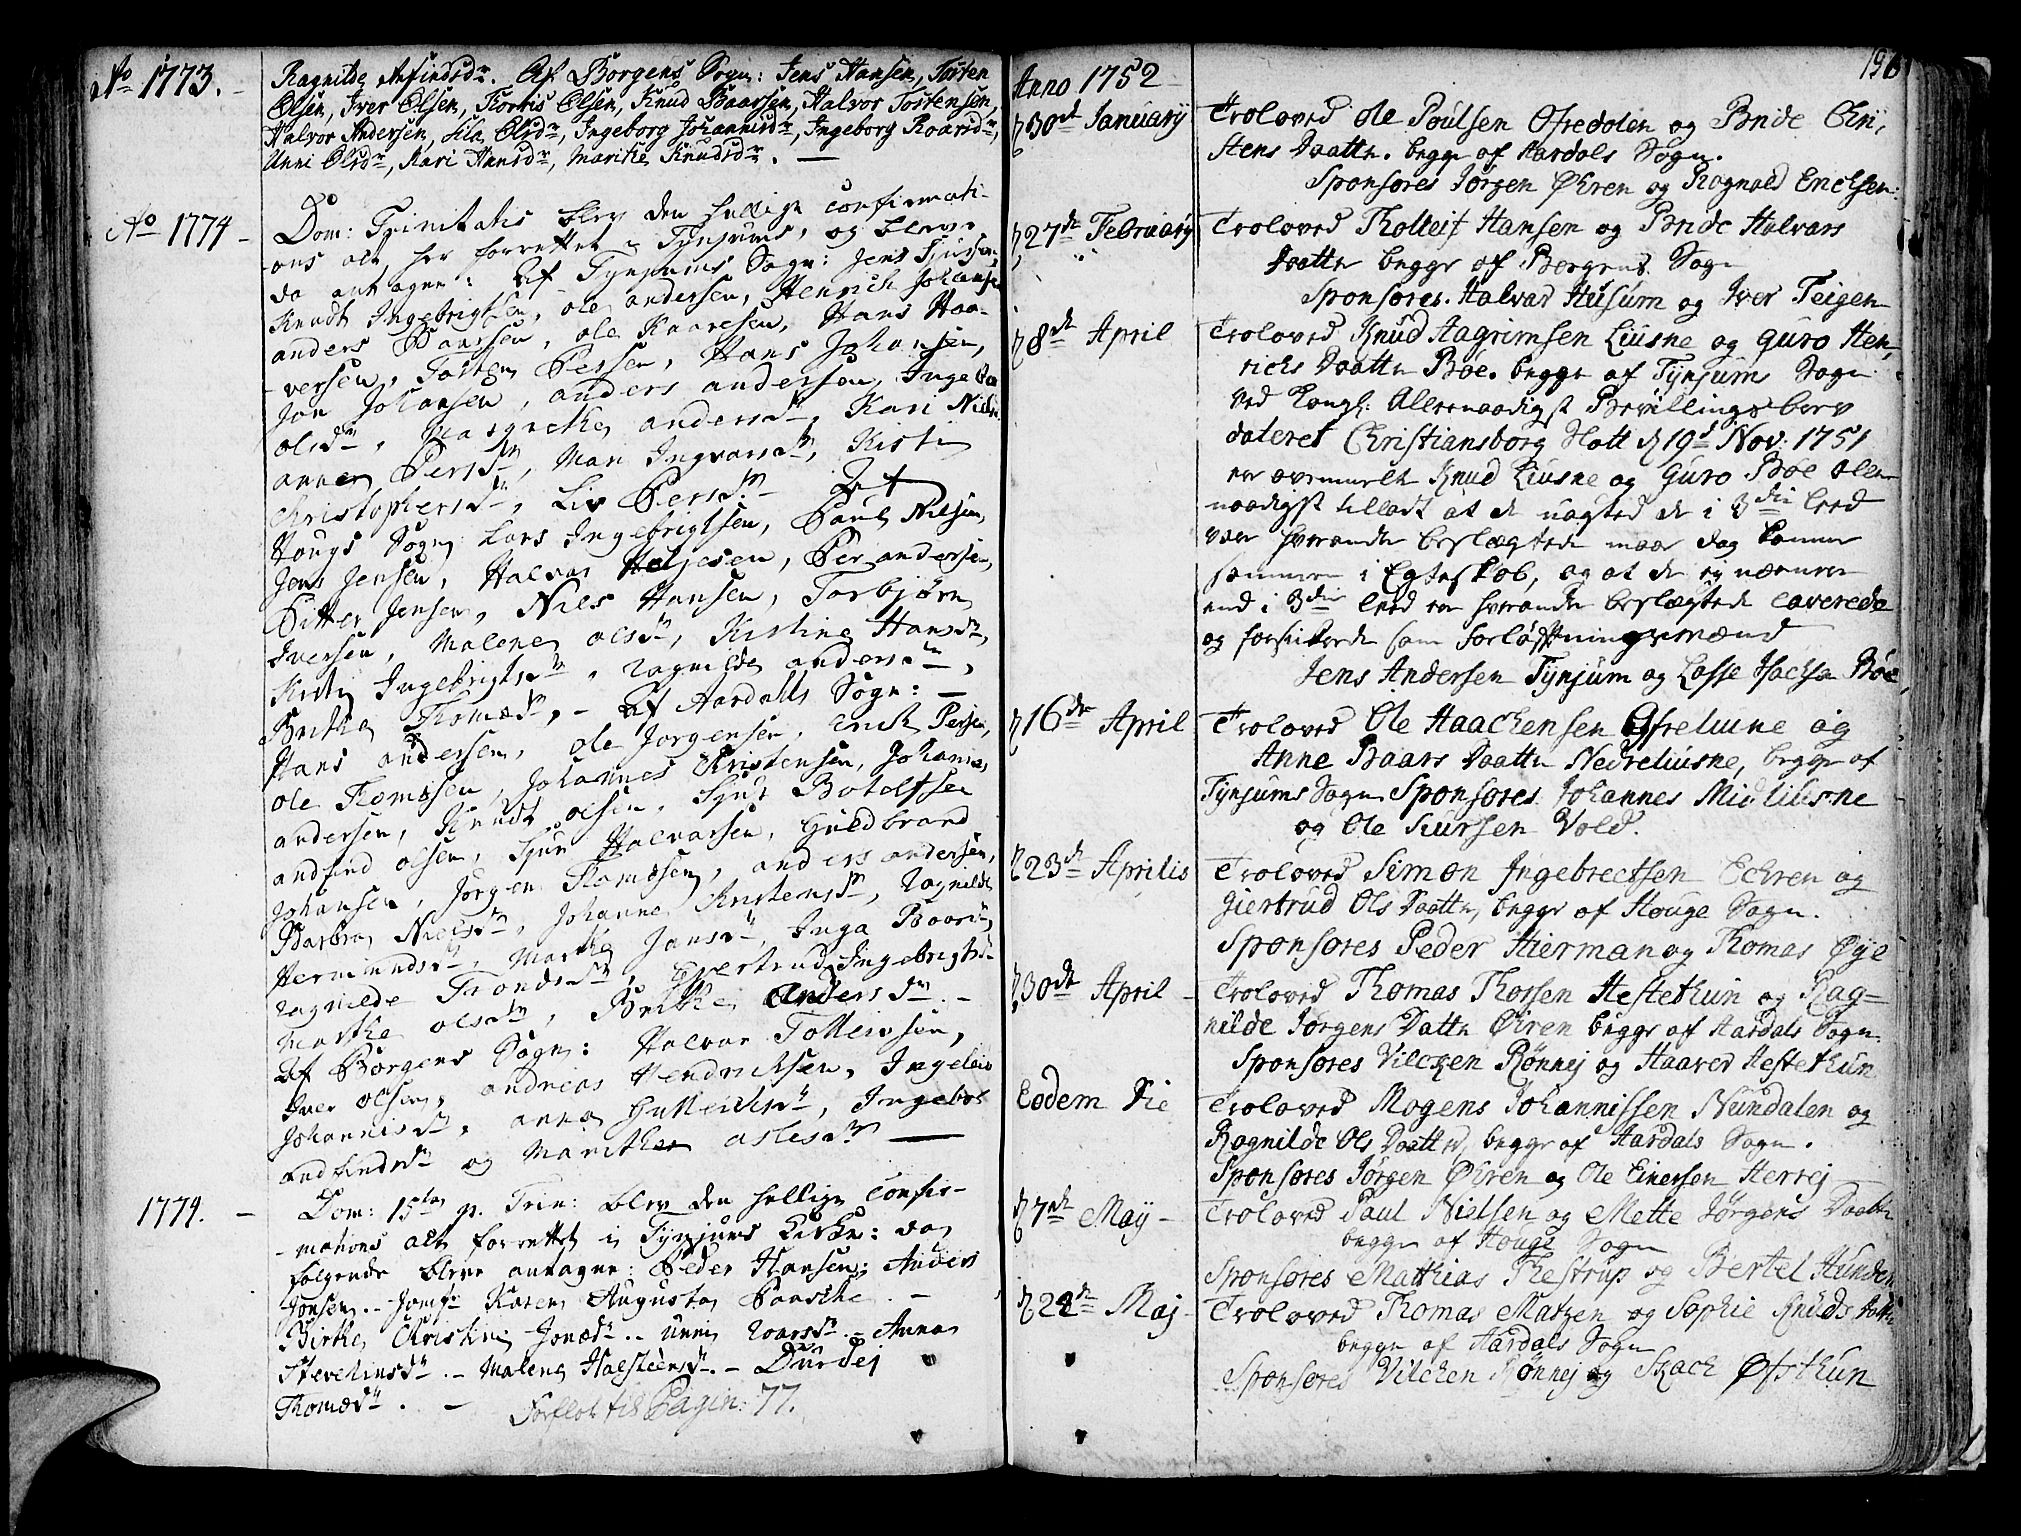 Ao 1773. -
Ragnilde Anfindsdr. Af Borgens Sogn: Jens Hansen, Tosten
Olsen, Iver Olsen, Knud Baarsen, Halvor Tostensen,
Halvor Andersen, Olsdr, Ingeborg Johannisdr, Ingeborg Roarsdr,
Unni Olsdr, Kari Annsdr, Marithe Knudsdr. —
Ao 1774 -
Dom: Trinitatis blev den hellige Confirmati-
ons act her forrettet i Tynjums, og bleve
da antagne: Af Tynjums Sogn: Jens
Knudt Ingebrigtsen, ole andersen, Henrich Johanse
anders Baarsen, ole Kaaresen, Hans Haa-
versen, Tosten Persen, Hans Johansen,
Jon Johansen, anders andersen, Inge
olsdr, Margrethe andersdr, Kari Niels
anne Persdr, Mari Ingvarsdr, Kisti
Christophersdr, Liv Persdr Af
Hougs Sogn Lars Ingebrigtsen, Paul Nilsen,
Jens Jensen, Halvor Helgesen, Per andersen,
Pitter Jensen, Nils Hansen, Torbjørn
Iversen, Malene olsdr, Kistine Hansdr,
Kisti Ingebrigtsdr, ragnilde andersdr,
Brithe Thomædr, - Af Aardals Sogn: —
Hans andersen, ole Jorgensen, Erick Persen,
ole Thomæsen, Johannes Kristensen, Johannes
andersen, Knudt olsen, Sjur Botolfsen
andfind olsen, Sjur Halvarsen, Guldbrand
Johansen, Jørgen Thomæsen, anders andersen,
Barbra Nielsdr, Johanne Kristensdr, Ragnilde
Hermundsdr, Marthe Jansdr, Inga Baarsdr,
ragnilde Trondsdr, Giertrud Ingebrigtsdr
Marthe olsdr, Brithe Andersdr. -
Af Borgens Sogn: Halvor Tolleivsen,
Iver olsen, andreas Hendrichsen, Ingeleiv
Johannisdr, anna, Ingebor
andfindsdr og Marithe aslesdr —
1774. -
Dom: 15ta p. Trin: blev den hellige Confir-
mations act forrettet i Tynjums Kirke: da
følgende bleve antagne: Peder Hansen; Anders
Jonsen. - Jomfr Karen Augusta Paasche. -
Birthe Christine Jonædr. - Unni roarsdr - Anna
Stephensdr. - Malena Halsteensdr. - Durdei
Thomædr. - Forflot til Pagin: 77.
Anno 1752
196
d 30dt Januarij
Troloved Ole Poulsen Ofredalen og Bride Chri,
stens Daatter. begge af Aardals Sogn.
Sponsores Jørgen Øhren og Rognald Enersen:
d 27de Februarij
Troloved Tholleif Hansen og Bride Halvars
Daatter begge af Borgens Sogn
Sponsores. Halvard Husum og Iver Teigen
d 8de April
Troloved Knud Aagrimsen Liusne og Guro Hen,
richs Daatter Bøe. begge af Tynjums Sogn
ved Kongl: Allernaadigst Bevillingsbrev
dateret Christiansborg Slott d 19d Nov: 1751
er ovenmelte Knud Liusne og Guro Bøe aller
naadigst tilladt at de uagted de i 3die leed
ere hverandre beslægtede maae dog komme
sammen i Egteskab, og at de ej nærmere
end i 3die leed ere hverandre beslægtede caverede
og forsikrede som forløftningsmænd
Jens Andersen Tynjum og Lasse Isachsen Bøe,
d 16de April
Troloved Ole Haachensen Øfreliune og
Anne Baars Daatter Nedreliusne, begge af
Tynjums Sogn Sponsores Johannes Midliusne
og Ole Siursen Vold.
d 23de Aprilis
Troloved Simon Ingebrectsen Echren og
Giertrud Ols Daatter, begge af Houge Sogn.
Sponsores Peder Hierman og Thomas Øye
d 30de April -
Troloved Thomas Thorsen Hestethun og Rag-
nilde Jørgens Datter Øiren begge af Aardals Sogn.
Sponsores Vilchen Rønnej og Haaver Hestethun
Eodem Die
Troloved Mogens Johannissen Nundalen og
Ragnilde Ols Daatter, begge af Aardals Sogn.
Sponsores Jørgen Øhren og Ole Einersen Herrej
d 7de Maij -
Troloved Paul Nielsen og Mette Jørgens Daatter
begge af Houge Sogn
Sponsores Matthias Thestrup og Bertel Hunderi
d 22de Maj -
Troloved Thomas Matzen og Sophie Knuds Datter
begge af Aardals Sogn
Sponsores Vilchen Rønnej og Isach Øfsthun